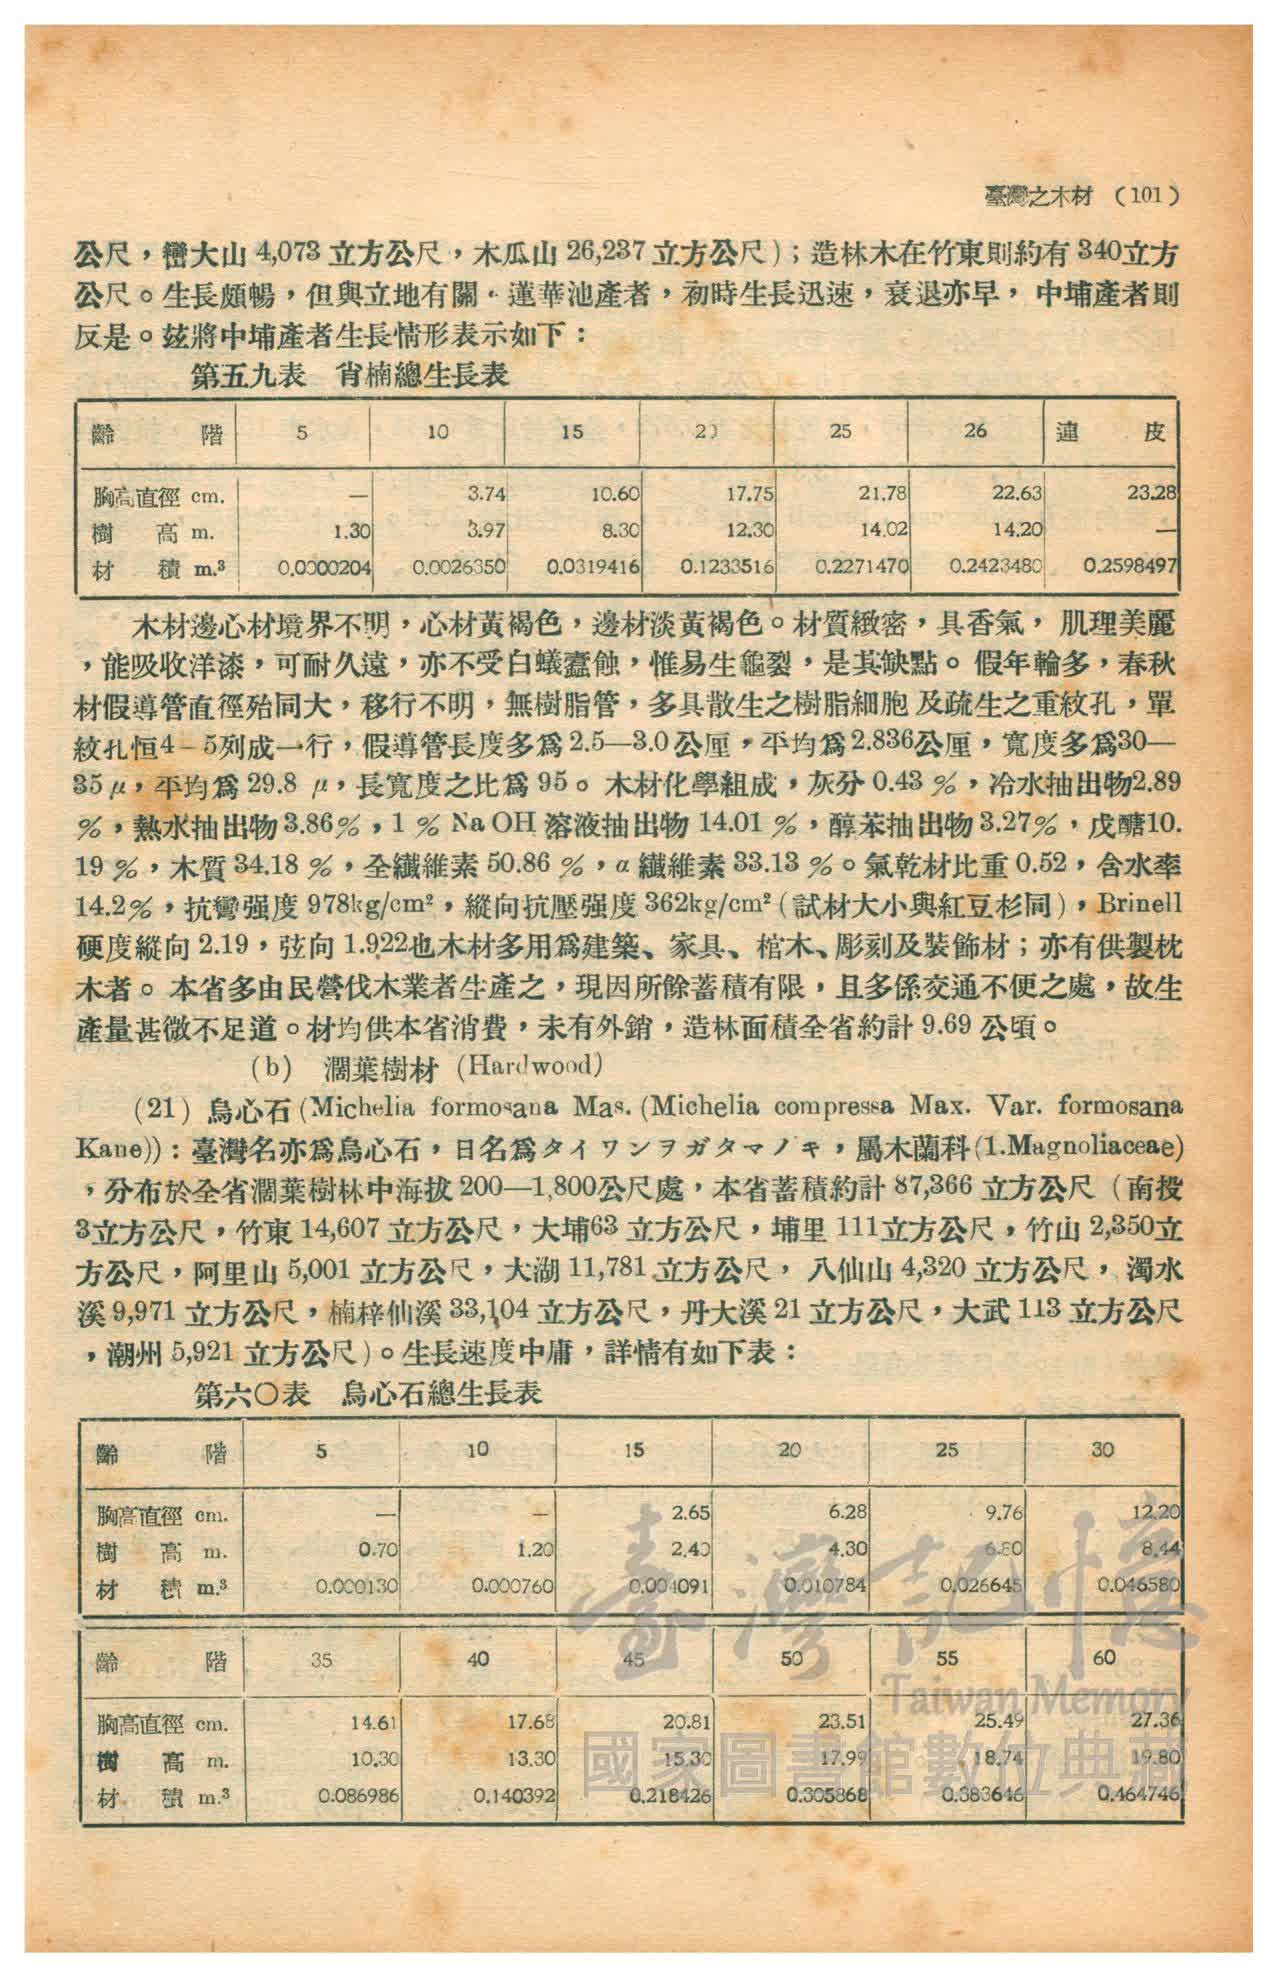 臺灣之木材 (101)
公尺，巒大山 4,073 立方公尺，木瓜山 26,237 立方公尺)；造林木在竹東則約有 340立方
公尺。生長頗暢，但與立地有關．蓮華池產者，初時生長迅速，衰退亦早，中埔產者則
反是。茲將中埔產者生長情形表示如下：
第五九表 肖楠總生長表
齡階 5 10 15 20 25 26 連皮
胸高直徑 cm. — 3.74 10.60 17.75 21.78 22.63 23.28
樹高 m. 1.30 3.97 8.30 12.30 14.02 14.20 —
材積 m.³ 0.0000204 0.0026350 0.0319416 0.1233516 0.2271470 0.2423480 0.2598497
木材邊心材境界不明，心材黃褐色，邊材淡黃褐色。材質緻密，具香氣，肌理美麗
，能吸收洋漆，可耐久遠，亦不受白蟻蠹蝕，惟易生龜裂，是其缺點。假年輪多，春秋
材假導管直徑殆同大，移行不明，無樹脂管，多具散生之樹脂細胞及疏生之重紋孔，單
紋孔恒4—5列成一行，假導管長度多爲 2.5—3.0 公厘，平均爲 2.836公厘，寬度多爲30—
35 μ，平均爲 29.8 μ，長寬度之比爲 95。木材化學組成，灰分 0.43 %，冷水抽出物2.89
%，熱水抽出物 3.86%，1 % NaOH 溶液抽出物 14.01 %，醇苯抽出物 3.27%，戊醣10.
19 %，木質 34.18 %，全纖維素 50.86 %，α 纖維素 33.13 %。氣乾材比重 0.52，含水率
14.2%，抗彎强度 978kg/cm²，縱向抗壓强度 362kg/cm² (試材大小與紅豆杉同)，Brinell
硬度縱向 2.19，弦向 1.922也木材多用爲建築、家具、棺木、彫刻及裝飾材；亦有供製枕
木者。本省多由民營伐木業者生產之，現因所餘蓄積有限，且多係交通不便之處，故生
產量甚微不足道。材均供本省消費，未有外銷，造林面積全省約計 9.69 公頃。
(b) 濶葉樹材 (Hardwood)
(21) 烏心石 (Michelia formosana Mas. (Michelia compressa Max. Var. formosana
Kane))：臺灣名亦爲烏心石，日名爲タイワンヲガタマノキ，屬木蘭科 (1.Magnoliaceae)
，分布於全省濶葉樹林中海拔 200—1,800公尺處，本省蓄積約計 87,366 立方公尺 (南投
3立方公尺，竹東 14,607 立方公尺，大埔63 立方公尺，埔里 111立方公尺，竹山 2,350立
方公尺，阿里山 5,001 立方公尺，大湖 11,781 立方公尺，八仙山 4,320 立方公尺，濁水
溪 9,971 立方公尺，楠梓仙溪 33,104 立方公尺，丹大溪 21 立方公尺，大武 113 立方公尺
，潮州 5,921 立方公尺)。生長速度中庸，詳情有如下表：
第六〇表 烏心石總生長表
齡階 5 10 15 20 25 30
胸高直徑 cm. — — 2.65 6.28 9.76 12.20
樹高 m. 0.70 1.20 2.40 4.30 6.80 8.44
材積 m.³ 0.000130 0.000760 0.004091 0.010784 0.026645 0.046580
齡階 35 40 45 50 55 60
胸高直徑 cm. 14.61 17.68 20.81 23.51 25.49 27.36
樹高 m. 10.30 13.30 15.30 17.99 18.74 19.80
材積 m.³ 0.086986 0.140392 0.218426 0.305868 0.383646 0.464746
臺灣記憶
Taiwan Memory
國家圖書館數位典藏